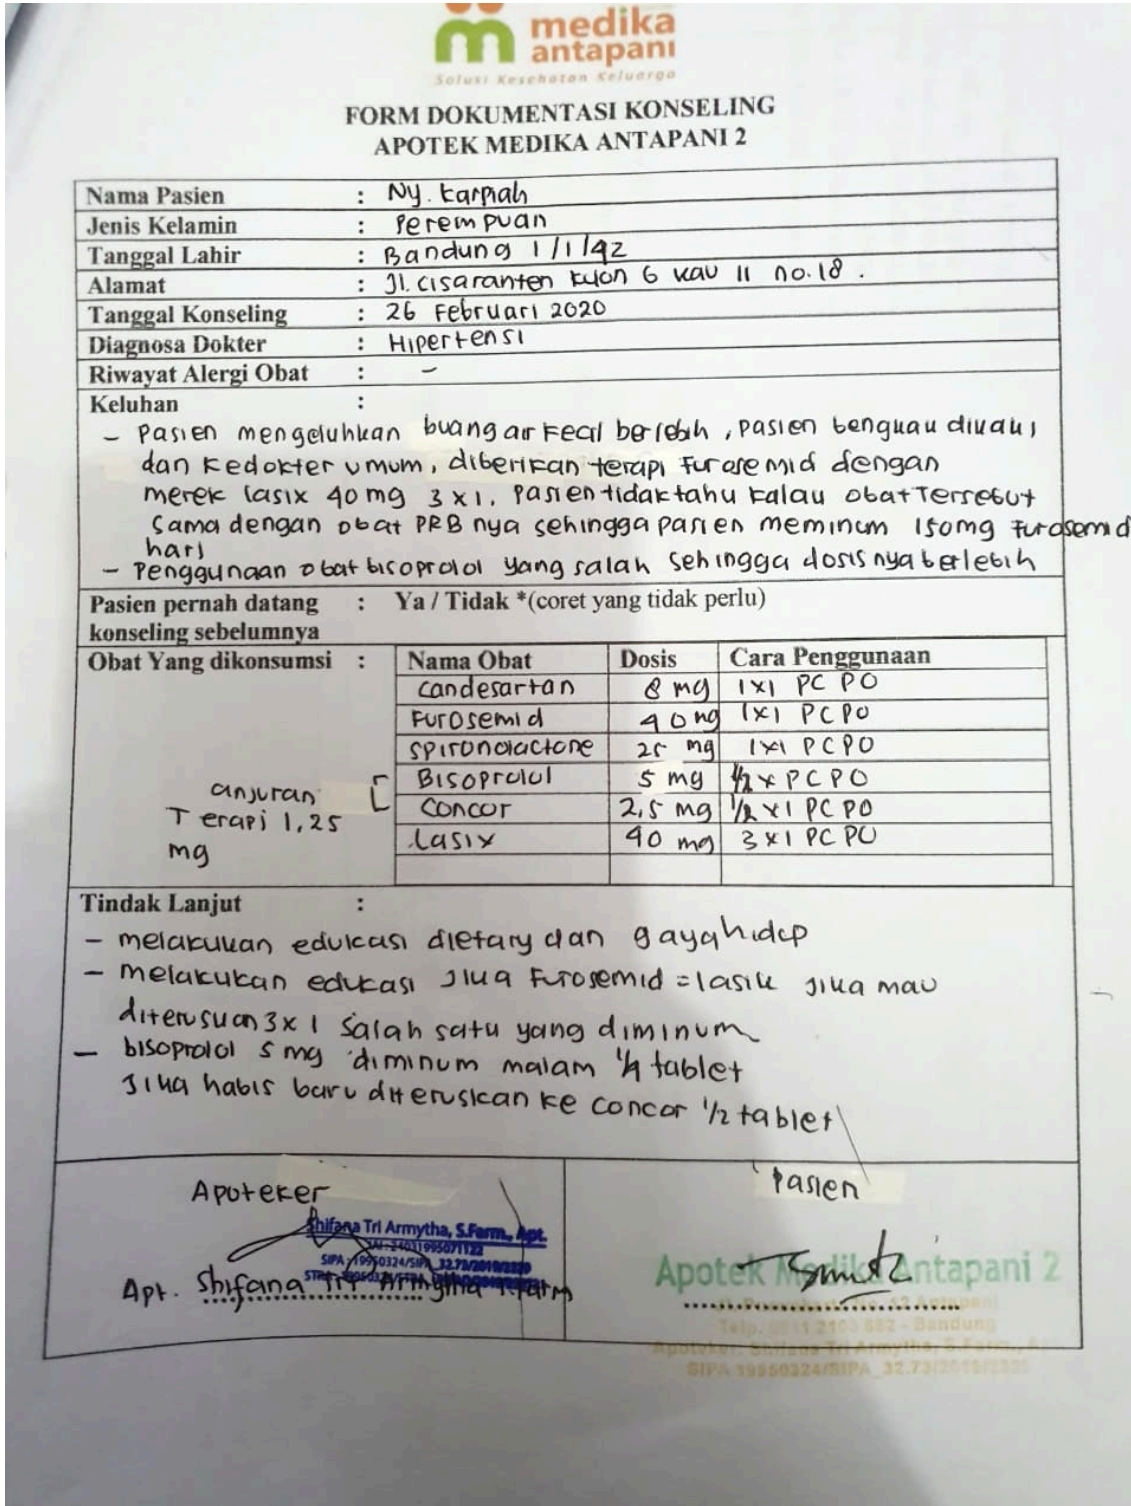 medika
antapani
Solusi Kesehatan Keluarga
FORM DOKUMENTASI KONSELING
APOTEK MEDIKA ANTAPANI 2
Nama Pasien : Ny. Karmah
Jenis Kelamin : Perempuan
Tanggal Lahir : Bandung 1/1/42
Alamat : Jl. cisaranten kulon 6 kav 11 no.18 .
Tanggal Konseling : 26 Februari 2020
Diagnosa Dokter : Hipertensi
Riwayat Alergi Obat : -
Keluhan :
- Pasien mengeluhkan buang air kecil berlebih, pasien bengkak dikaki
dan kedokter umum, diberikan terapi furosemid dengan
merek lasix 40 mg 3 x 1. Pasien tidak tahu kalau obat Tersebut
Sama dengan obat PRB nya sehingga pasien meminum 150mg furosemid
hari
- Penggunaan obat bisoprolol yang salah sehingga dosis nya berlebih
Pasien pernah datang : Ya / Tidak *(coret yang tidak perlu)
konseling sebelumnya
Obat Yang dikonsumsi : Nama Obat Dosis Cara Penggunaan
Candesartan 8 mg 1x1 PC PO
Furosemid 40 mg 1x1 PC PO
Spironolactone 25 mg 1x1 PC PO
Bisoprolol 5 mg 1/2 x PC PO
anjuran Concor 2,5 mg 1/2 x1 PC PO
Terapi 1,25 Lasix 40 mg 3x1 PC PO
mg
Tindak Lanjut :
- melakukan edukasi dietary dan gaya hidup
- melakukan edukasi jika Furosemid = lasik jika mau
diteruskan 3x1 salah satu yang diminum
- bisoprolol 5 mg diminum malam 1/4 tablet
Jika habis baru diteruskan ke concor 1/2 tablet
Apoteker Pasien
Shifana Tri Armytha, S.Farm., Apt.
Apt. Shifana Tri Armytha
Apotek Medika Antapani 2